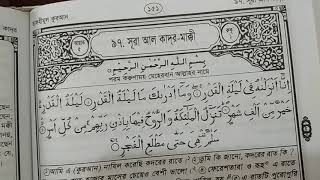 ১৫১
৯৭. সূরা আল কাদর-মাক্কী
بِسْمِ اللّٰهِ الرَّحْمٰنِ الرَّحِيْمِ
পরম করুণাময় মেহেরবান আল্লাহর নামে
اِنَّآ اَنْزَلْنٰهُ فِيْ لَيْلَةِ الْقَدْرِ وَمَآ اَدْرٰىكَ مَا لَيْلَةُ الْقَدْرِ لَيْلَةُ الْقَدْرِ
خَيْرٌ مِّنْ اَلْفِ شَهْرٍ تَنَزَّلُ الْمَلٰٓئِكَةُ وَالرُّوْحُ فِيْهَا بِاِذْنِ رَبِّهِمْ مِّنْ كُلِّ اَمْرٍ
سَلٰمٌ هِيَ حَتّٰى مَطْلَعِ الْفَجْرِ
আমি এ (কুরআন) নাযিল করেছি কদরের রাতে। তুমি কি জানো, কদরের রাত কি?
মাসের চেয়েও বেশী ভালো। ফেরেশতারা ও রূহ এ রাতে